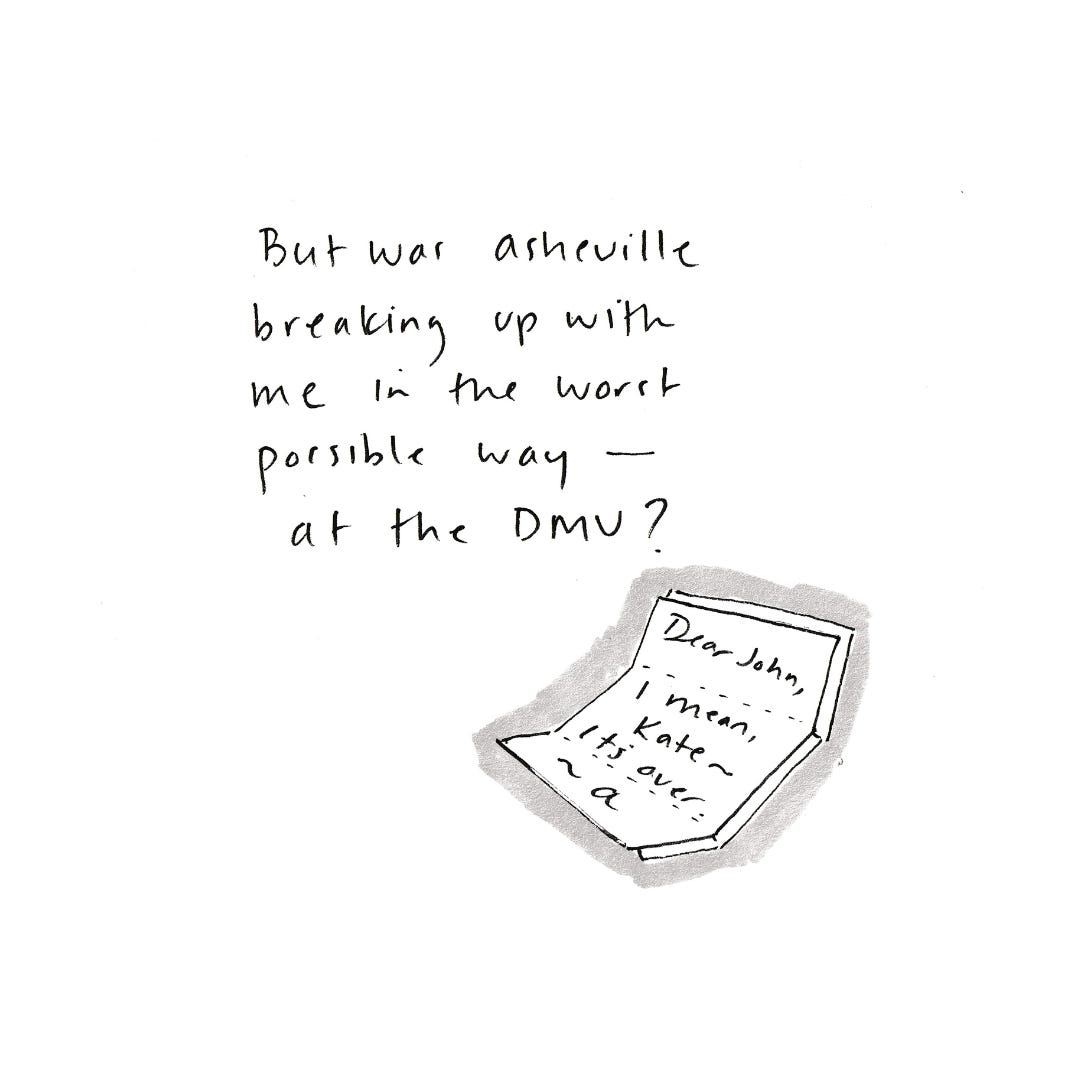 But was asheville
breaking up with
me in the worst
possible way —
at the DMV?
Dear John,
I mean,
Kate ~
Its over.
~ a